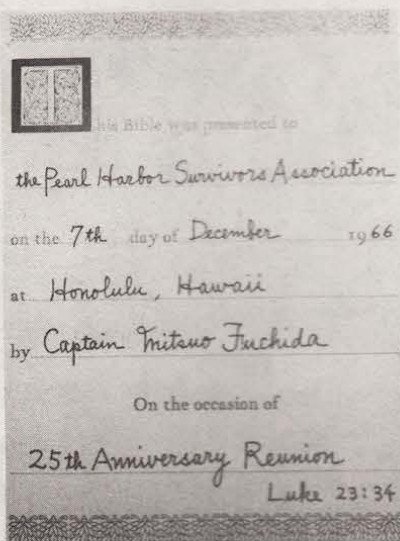 This Bible was presented to
the Pearl Harbor Survivors Association
on the 7th day of December 1966
at Honolulu, Hawaii
by Captain Mitsuo Fuchida
On the occasion of
25th Anniversary Reunion
Luke 23:34